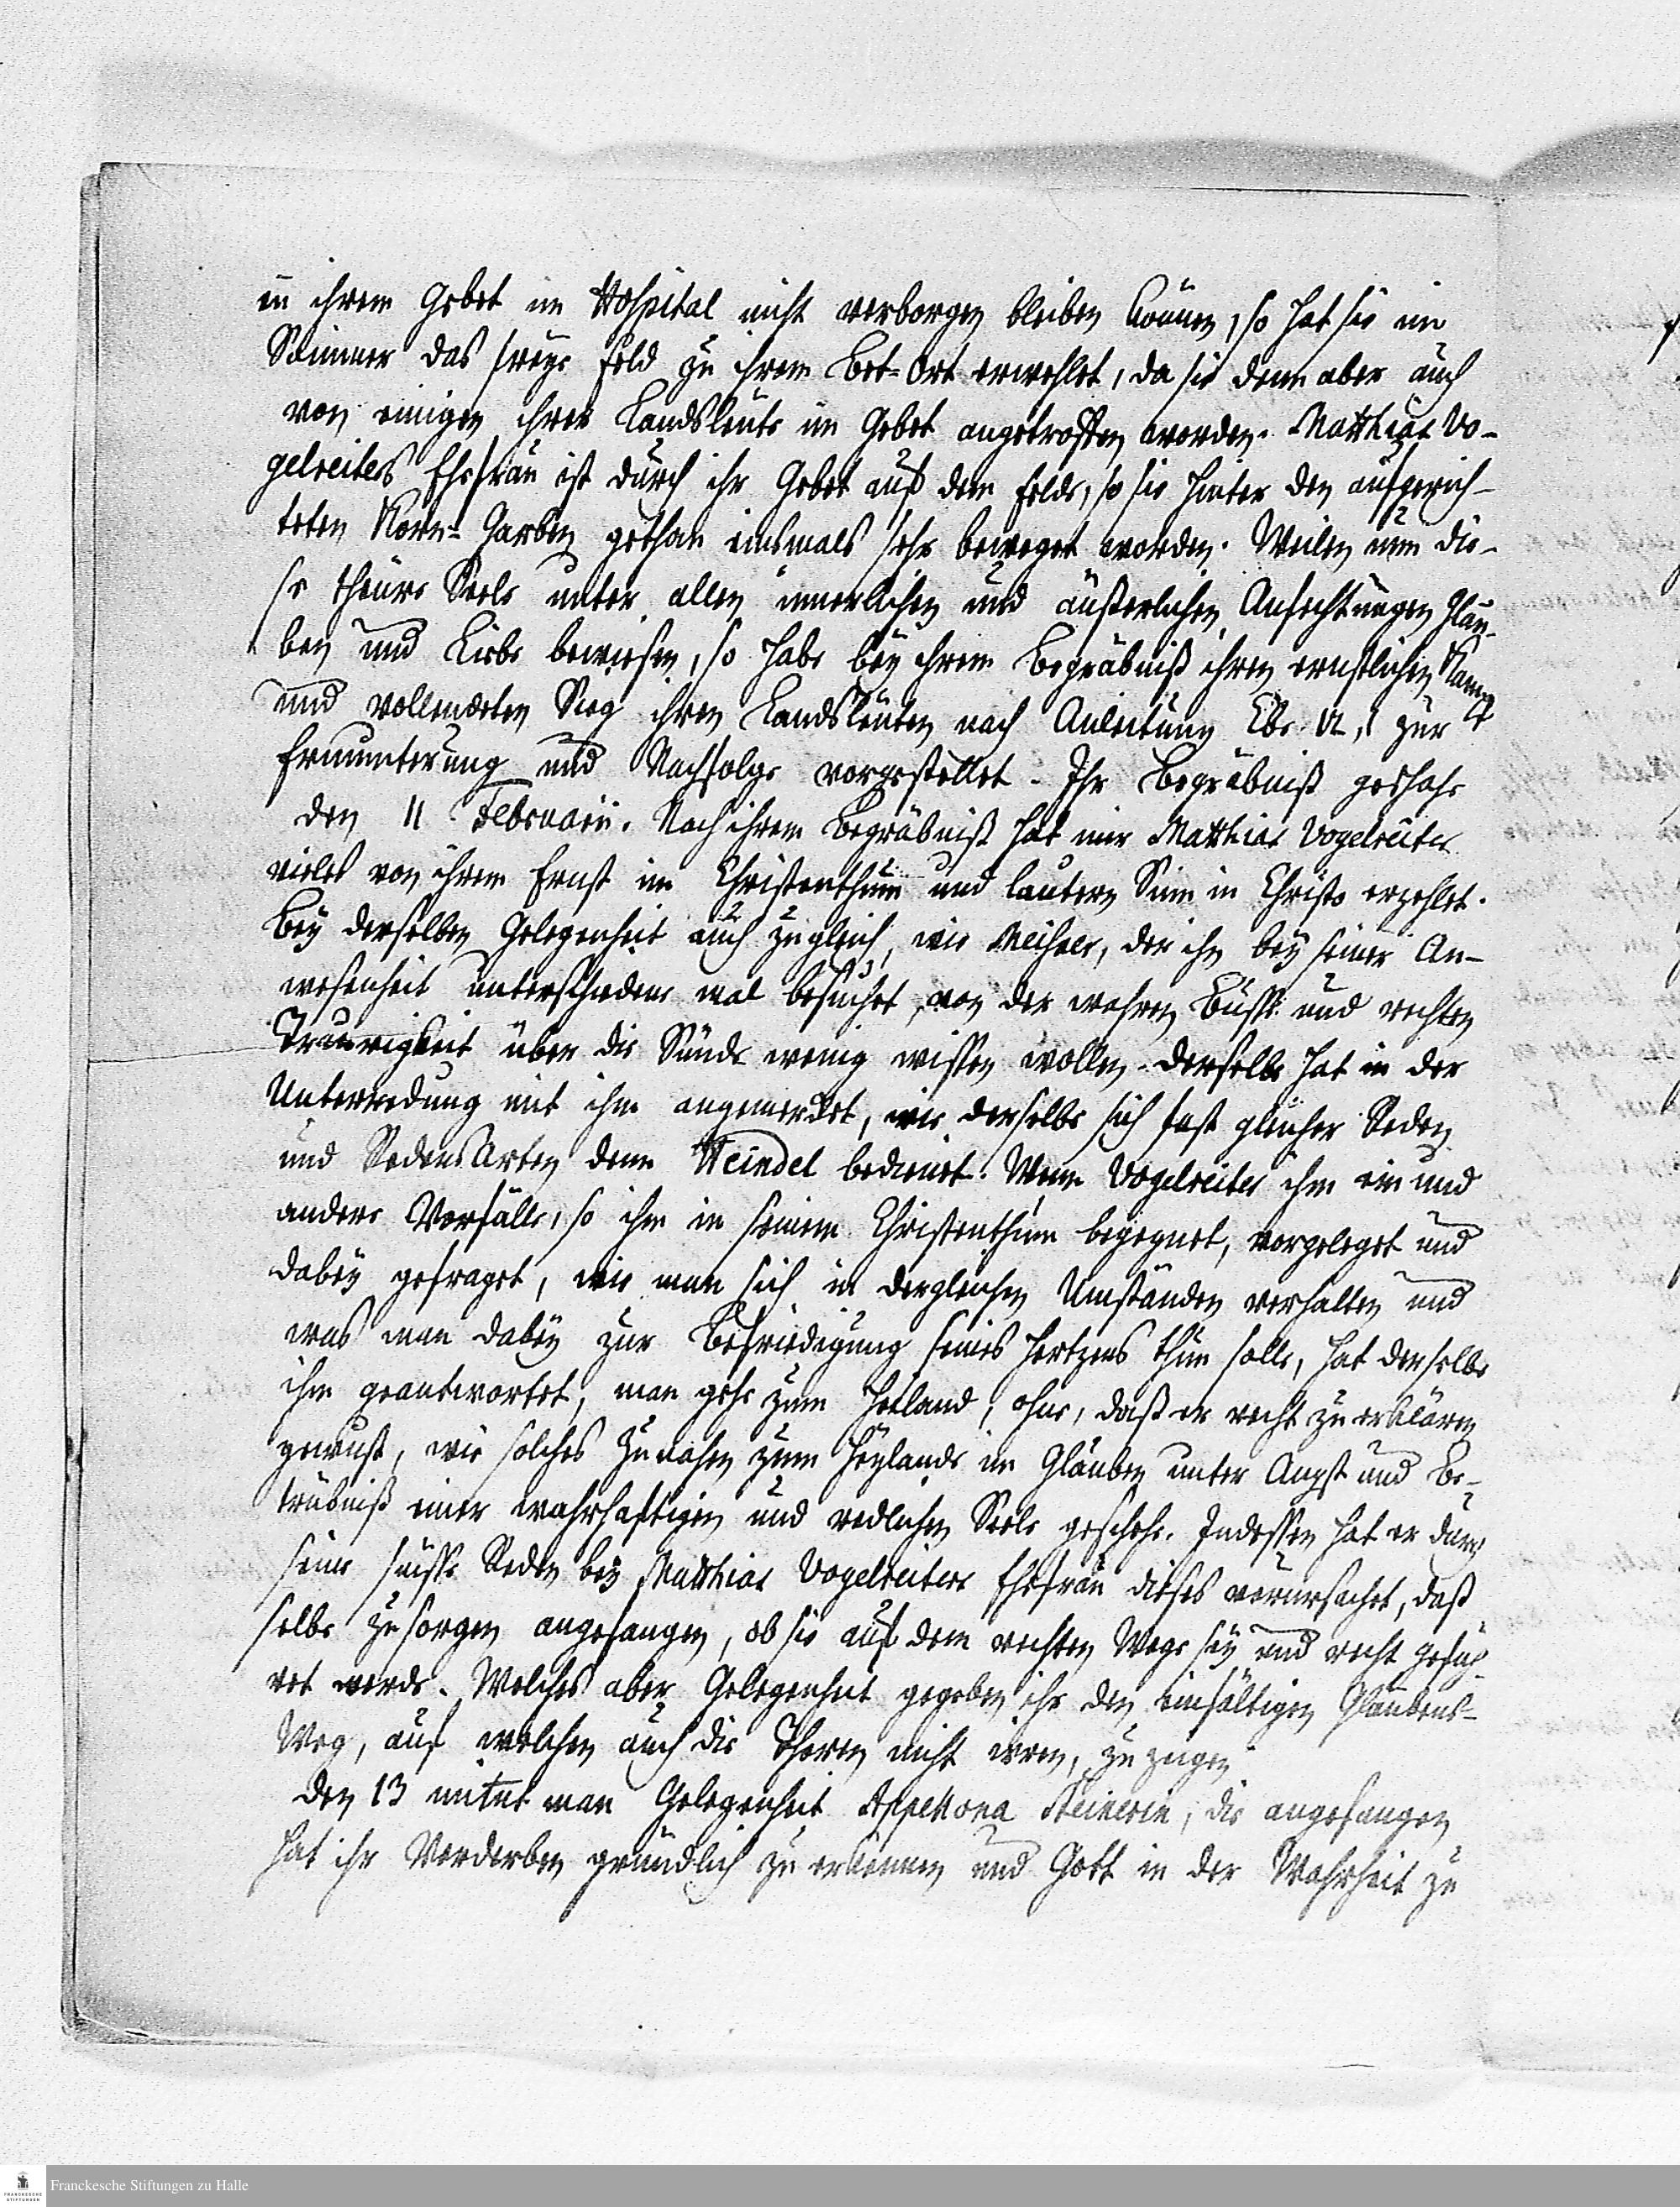 in ihrem Gebet im Hospital nicht verborgen bleiben können, so hat sie im
Sommer das freye Feld zu ihrem Bet-Ort erwehlet, da sie denn aber auch
von einigen ihrer Landsleute im Gebet angetroffen worden. Matthias Vo-
gelreiters Ehefrau ist durch ihr Gebet auf dem Felde, so sie hinter den aufgerich-
teten Korn-Garben gethan einsmals sehr beweget worden. Weilen nun die-
se theure Seele unter allen innerlichen und äußerlichen Anfechtungen Glau-
ben und Liebe bewiesen, so habe bey ihrem Begräbniß ihren ernstlichen Kampf
und vollendeten Sieg ihren Landsleuten nach Anleitung Ebr. 12, 1 zur
Ermunterung und Nachfolge vorgestellet. Ihr Begräbniß geschahe
den 11 Februarii. Nach ihrem Begräbniß hat mir Matthias Vogelreiter
vieles von ihrem Ernst im Christenthum und lautern Sinn in Christo erzehlet.
Bey derselben Gelegenheit auch zugleich, wie der ihn bey seiner An-
wesenheit unterschiedene mal besuchet, von der wahren Busse und rechten
Traurigkeit über die Sünde wenig wissen wollen. Derselbe hat in der
Unterredung mit ihm angemerket, wie derselbe sich fast gleicher Reden
und RedensArten dem Weindel bedienet. Wenn Vogelreiter ihm ein und
andere Vorfälle, so ihm in seinem Christenthum begegnet, vorgeleget und
dabey gefraget, wie man sich in dergleichen Umständen verhalten und
was man dabey zur Befriedigung seines Hertzens thun solle, hat derselbe
ihm geantwortet, man gehe zum Heiland, ohne, daß er recht zu erklären
gewust, wie solches Zunahen zum Heylande im Glauben unter Angst und Be-
trübniß einer wahrhaftigen und redlichen Seele geschehe. Indessen hat er durch
seine süsse Reden bey Matthias Vogelreiters Ehefrau dieses verursachet, daß
selbe zu sorgen angefangen, ob sie auf dem rechten Wege sey und recht gefüh-
ret werde. Welches aber Gelegenheit gegeben ihr den einfältigen Glaubens-
Weg, auf welchen auch die Thoren nicht irren, zu zeigen
den 13 man Gelegenheit die angefangen
hat ihr Verderben gründlich zu erkennen und Gott in der Wahrheit zu
Franckesche Stiftungen zu Halle